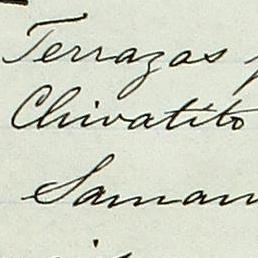 Terrazas
Chivatito
Saman